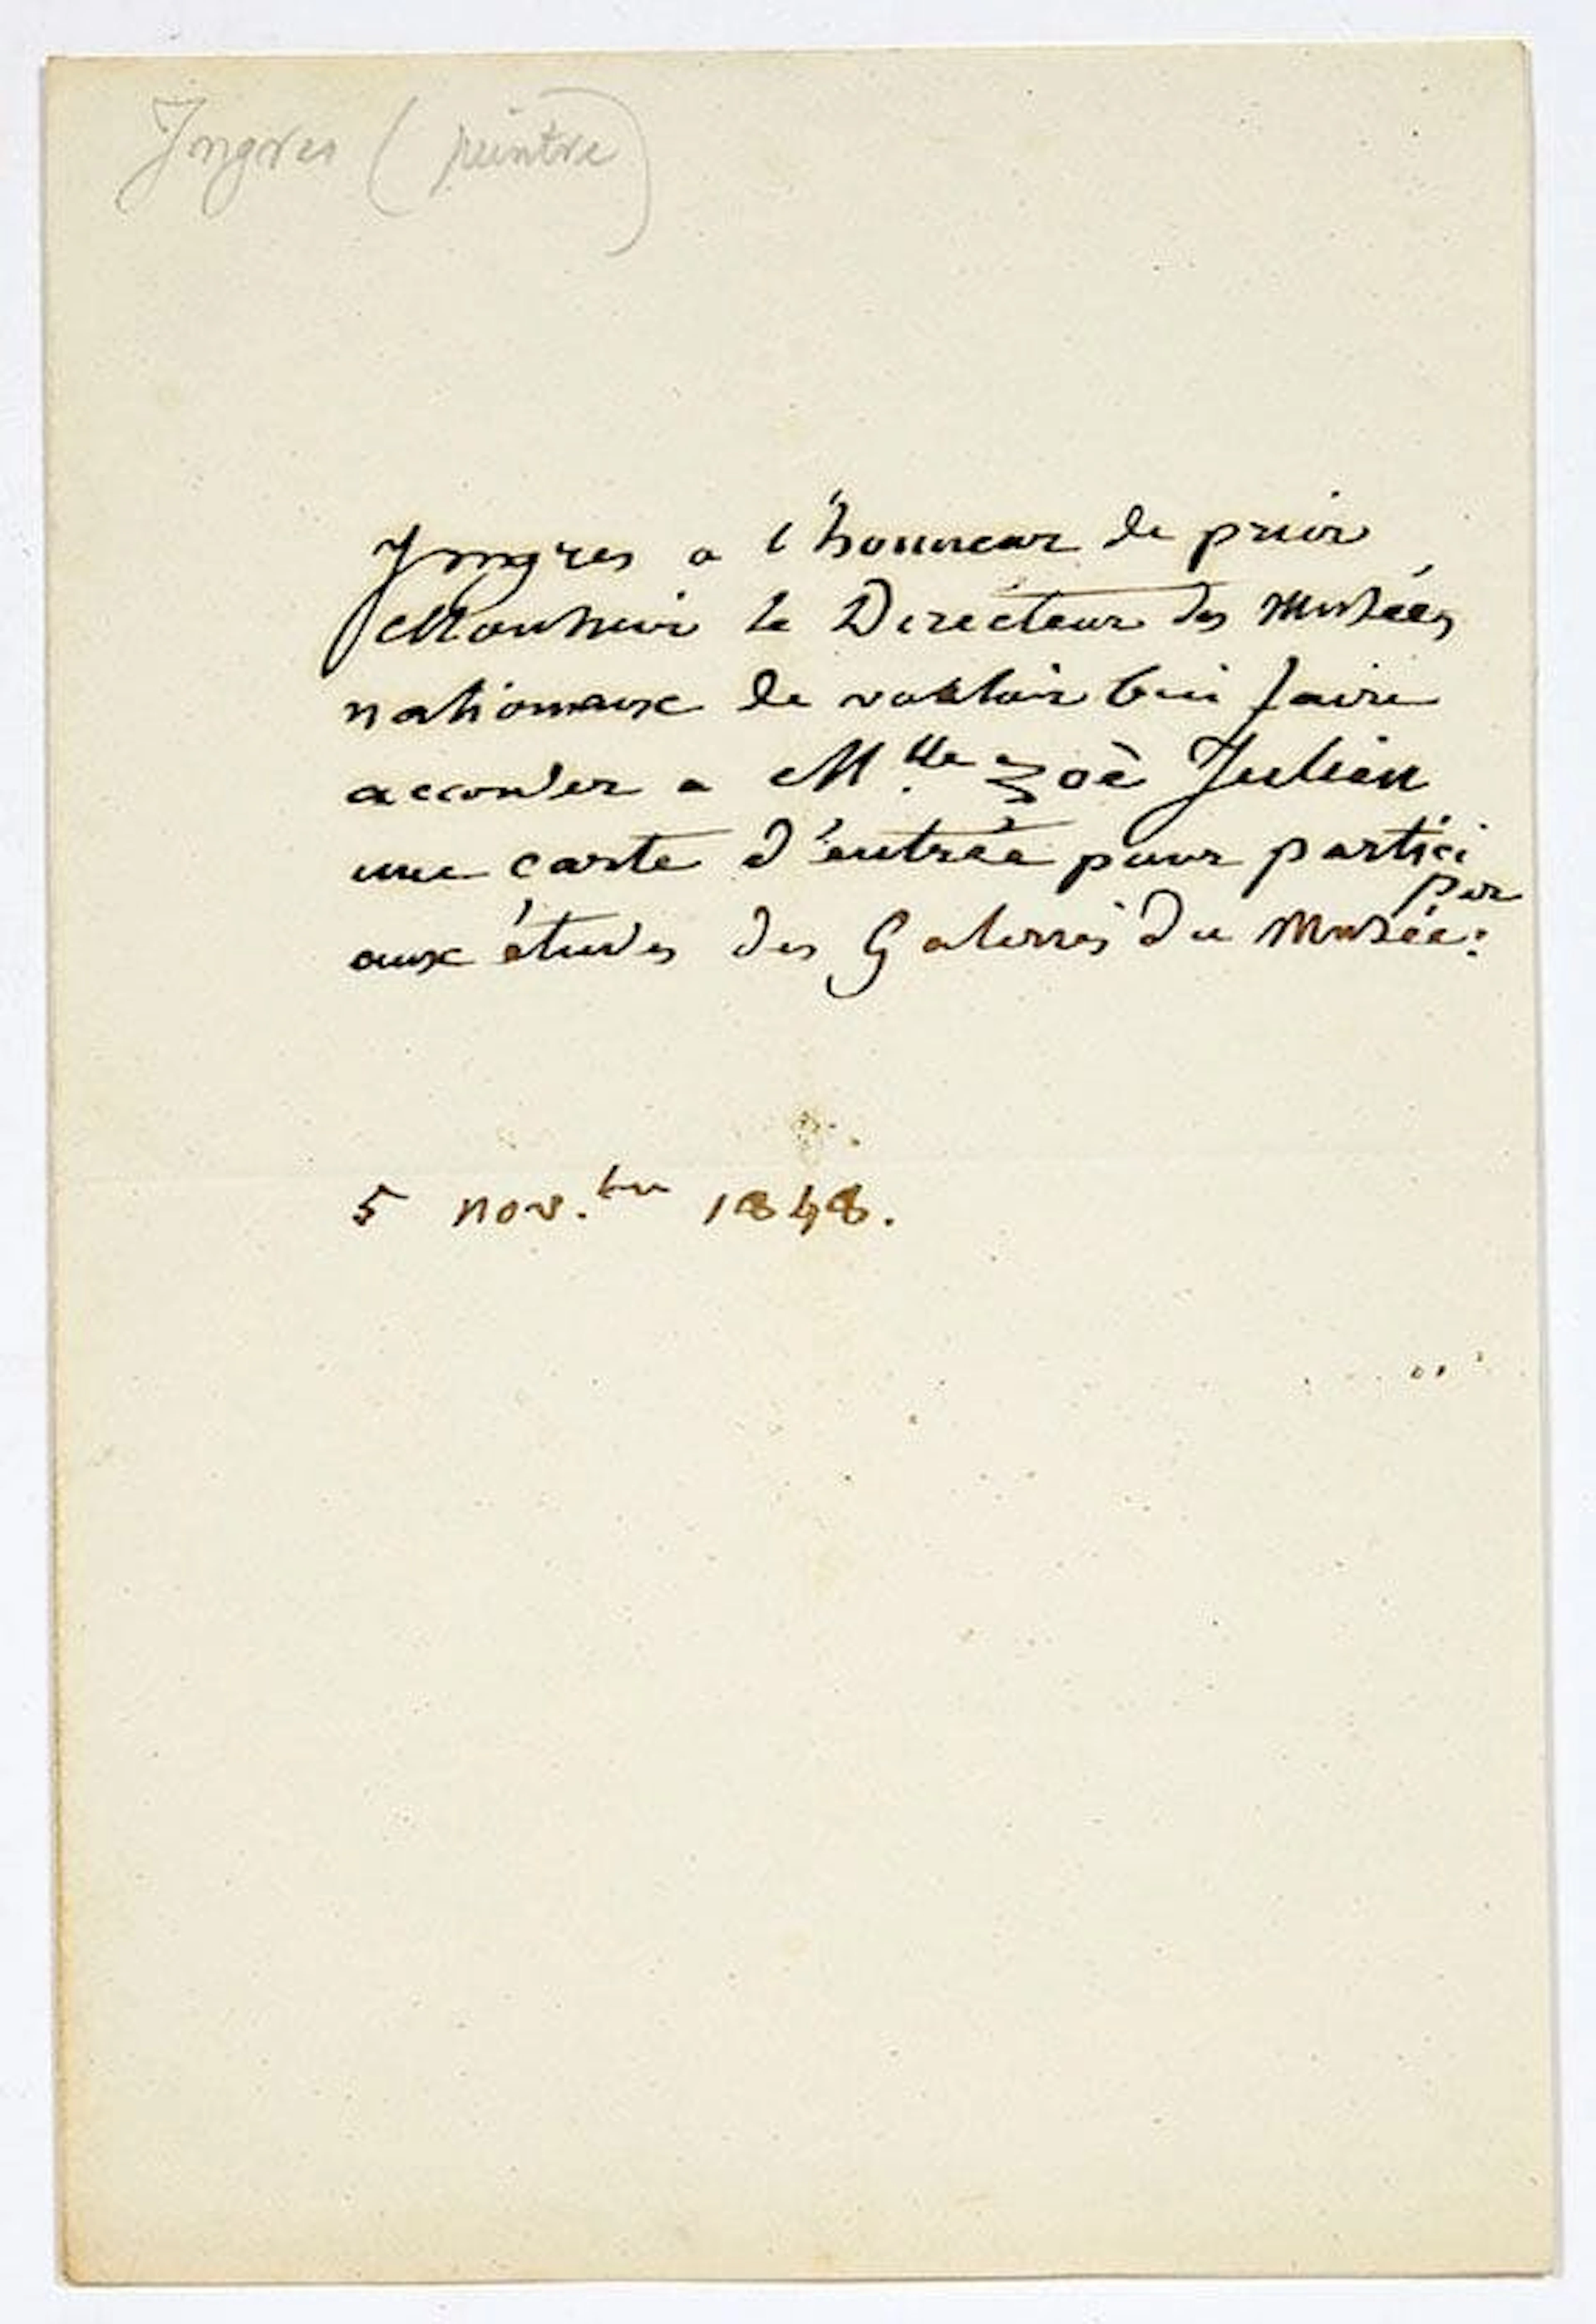 Ingres (peintre)
Ingres a l'honneur de prier
Monsieur le Directeur des Musées
nationaux de vouloir bien faire
accorder a M.lle Zoè Julien
une carte d'entrée pour partici
per
aux études des Galeries du Musée:
5 nov.bre 1848.